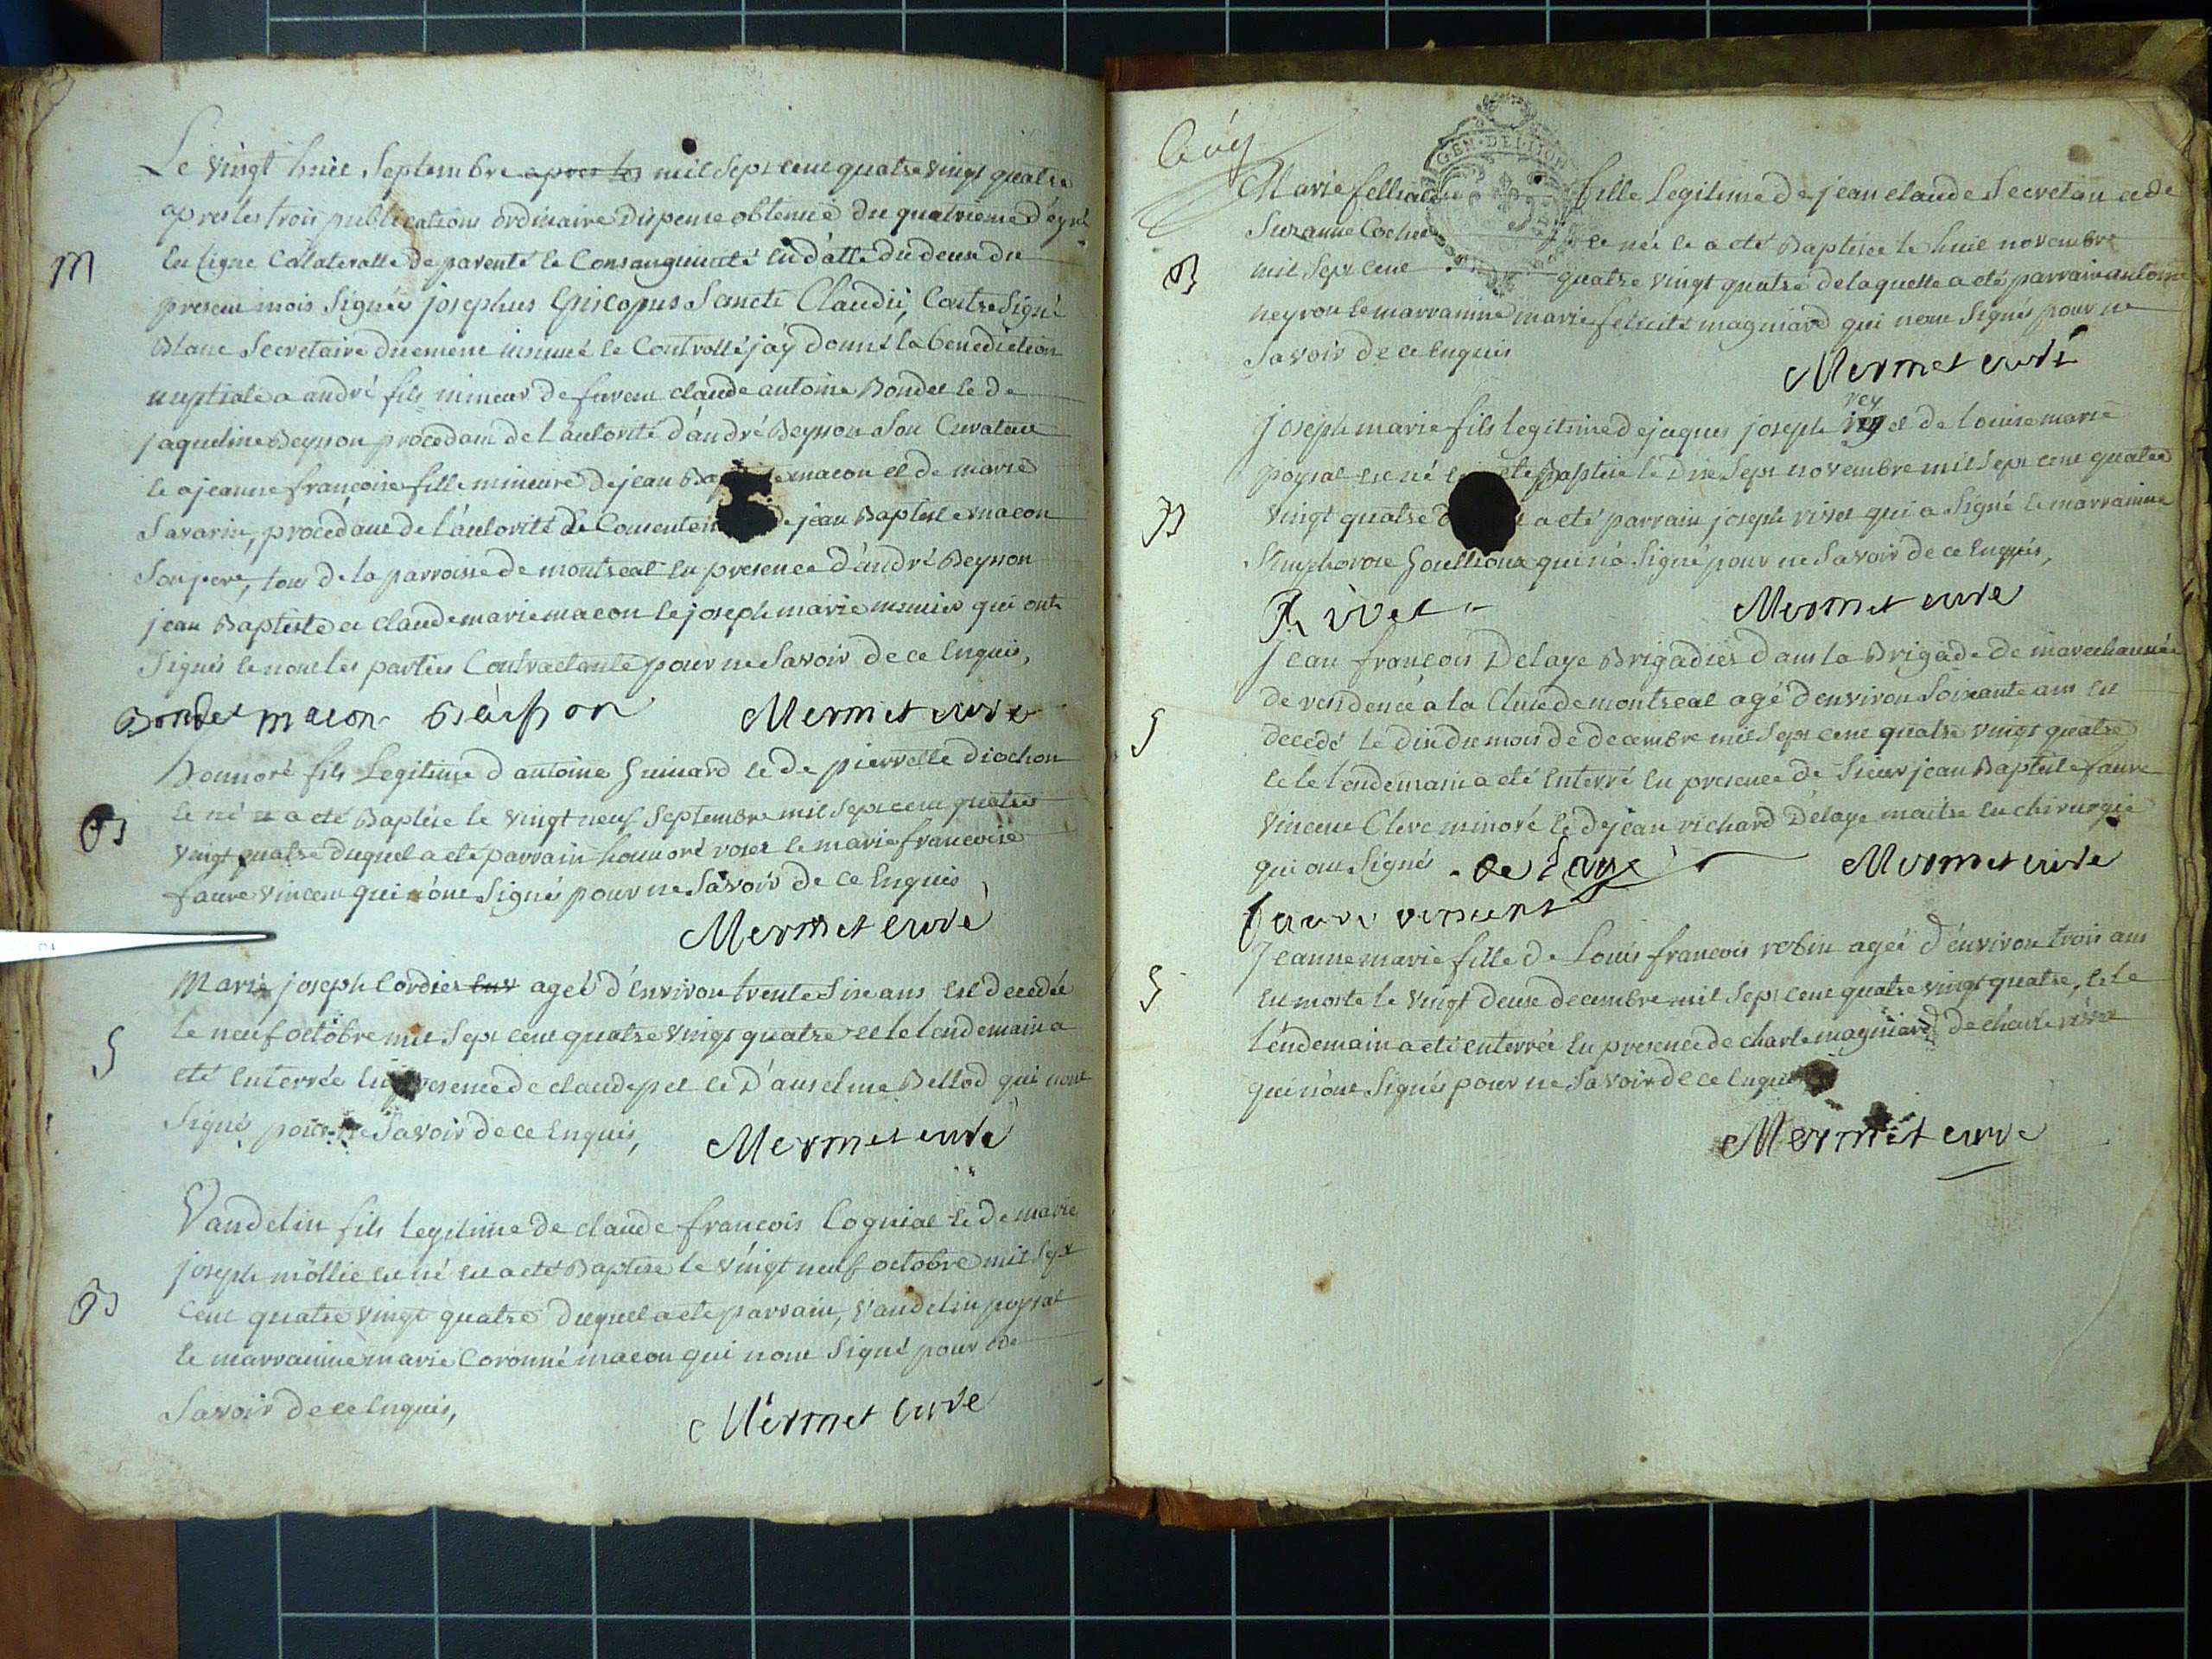 Le vingt huit Septembre apres les mil sept cent quatre vingt quatre
apres les trois publications ordinaire Dispense obtenuë du quatrieme dégré
En ligne Colateralle de parenté et Consanguinité En d'atte du deux du
present mois Signée josephus Episcopus Sancti Claudii, Contresigné
Blanc Secretaire duement insinué et Controllé j'ay donné la benediction
nuptiale a andré fils mineur de claude antoine Bondet et de
jaqueline Beysson procedant de l'autorité d'andré Beysson Son Curateur
et a jeanne françoise fille mineure de jean macon et de marie
Savarin, procedant de l'autorité de jean Baptiste macon
Son pere, tous de la parroisse de montreal En presence d'andré Beysson
jean Baptiste et claude marie macon et joseph marie munier qui ont
Signés et non les parties Contractante pour ne Savoir de ce Enquis,
Bondet macon Mermet curé
M
honnoré fils Legitime d'antoine guinard et de pierrette diochon
Est né et a eté Baptisé le vingt neuf Septembre mil sept cent quatre
vingt quatre duquel a eté parrain honnoré roset et marie francoise
faure vincent qui n'ont Signés pour ne Savoir de ce Enquis
B
Mermet curé
Marie joseph Cordier agée d'Environ trente Six ans Est decedée
le neuf octobre mil Sept cent quatre vingt quatre et le lendemain a
eté Enterrée En presence de claude pet et D'anselme Bellod qui n'ont
Signé pour ne Savoir de ce Enquis, Mermet curé
S
Vandelin fils legitime de claude françois Cogniat et de marie
joseph mollie Est né Et a eté Baptisé le vingt neuf octobre mil Sept
Cent quatre vingt quatre duquel a eté parrain, Vandelin poysat
et marrainne marie Coronné macon qui n'ont Signé pour de
Savoir de ce Enquis,
B
Mermet curé
GEN·DE·LION
Marie fille Legitime de jean claude Secretan et de
Suzanne est née et a eté Baptisée le huit novembre
mil Sept cent quatre vingt quatre de laquelle a eté parrain antoine
neyron et marrainne marie felicité magniard qui n'ont Signés pour ne
Savoir de ce Enquis
B
Mermet curé
rey
joseph marie fils legitime de jaques joseph et de louise marie
poysat est né eté Baptisé le Dix Sept novembre mil Sept cent quatre
vingt quatre a eté parrain joseph rivet qui a Signé et marrainne
Simphorose goullioux qui n'a Signé pour ne Savoir de ce Enquis,
B
Rivet Mermet curé
Jean françois Delaye Brigadier dans la Brigade de marechaussée
de residence a la Cluse de montreal agé d'environ Soixante ans Est
decedé le dix du mois de decembre mil Sept cent quatre vingt quatre
et le lendemain a eté Enterré En presence de Sieur jean Baptiste faure
vincent Clerc minoré et de jean richard Delaye maitre En chirurgie
qui ont Signés De Laye Mermet curé
faure vincent
S
Jeanne marie fille de Louis francois robin agée d'environ trois ans
Est morte le vingt deux decembre mil Sept cent quatre vingt quatre, et le
lendemain a eté enterrée En presence de charle magniard de charle
qui n'ont Signés pour ne Savoir de ce Enquis
S
Mermet curé